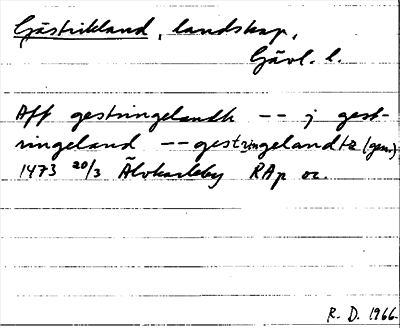 Gästrikland, landskap,
Gävl. l.
Aff gestringelandh -- j gest-
ringeland -- gestringelandtz (gen.)
1473 20/3 Älvkarleby RAp or.
R. D. 1966.